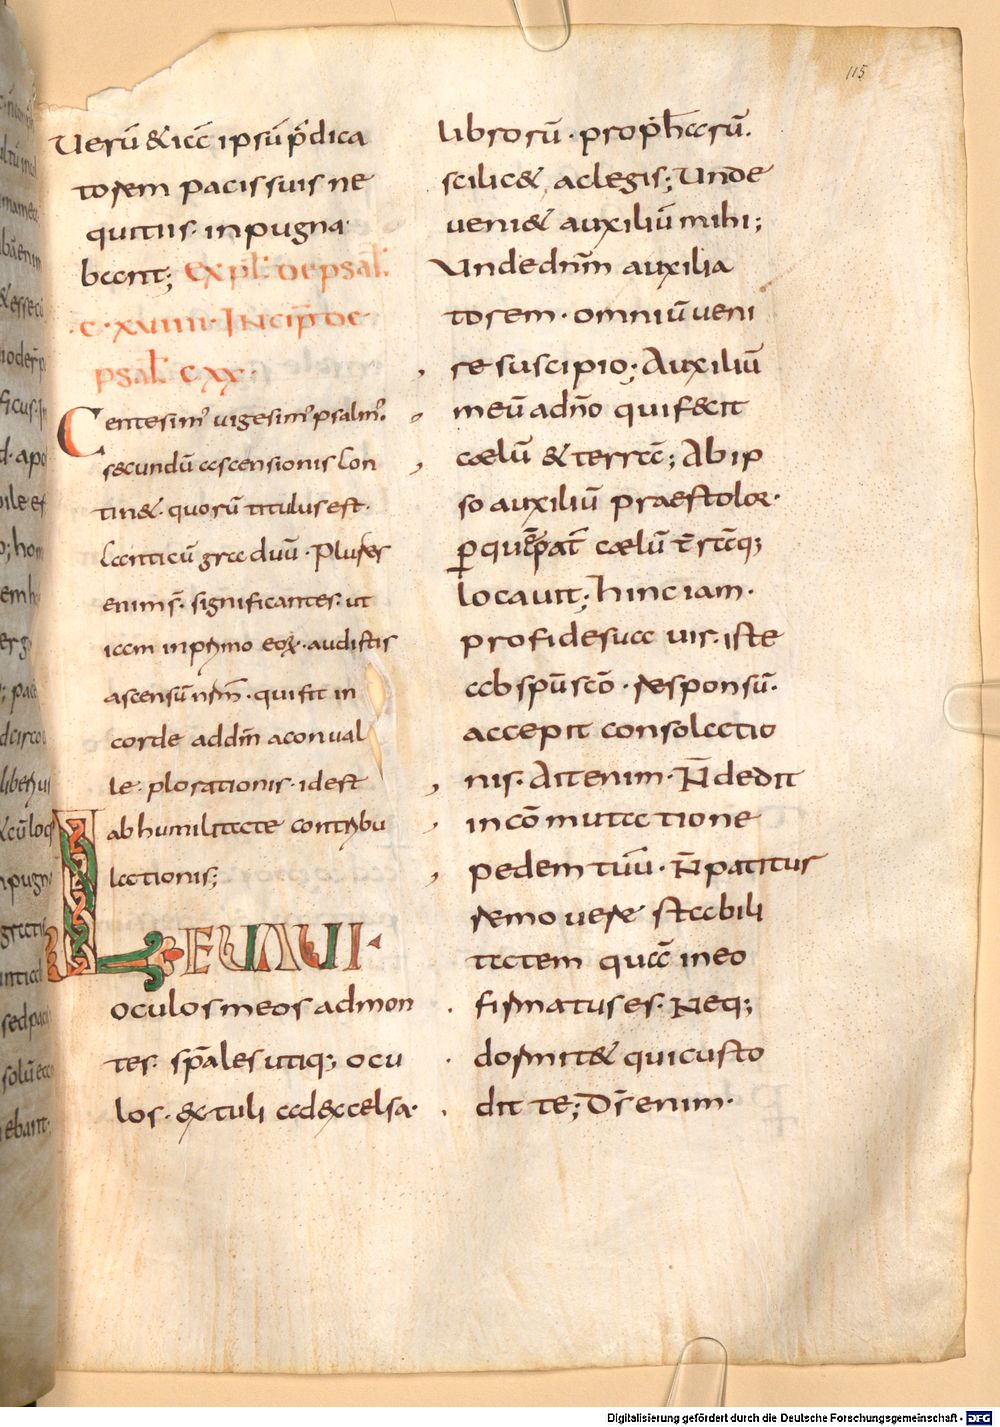 115
Uerū & icc̄ ipsū p̄dica
torem pacis suis ne
quitiis· inpugna
bant; Expl̄ de psal̄
·C·XVIIII· Incip̄ de
psal̄ CXX·
Centesim' uigesim' psalm'·
secundū ascensionis con
tin&· quorū titulus est·
canticū graduū· Plures
enim s̄· significantes· ut
iam in primo eoꝝ· audistis
ascensū nr̄m̄· qui fit in
corde ad dn̄m a conual
le plorationis· id est
ab humilitate contribu
lationis;
LEUAUI·
oculos meos ad mon
tes· sp̄ales utiq; ocu
los· extuli ad excelsa·
librorū· proph&arū·
scilic& ac legis; Unde
ueni& auxiliū mihi;
Unde dn̄m auxilia
torem· omniū ueni
re suscipio; Auxiliū
meū a dn̄o qui fecit
cælū & terrā; Ab ip
so auxiliū praestolor·
ꝑ quē pat̄ cælū t̄rāq;
locauit; hinc iam·
pro fide sua uir iste
ab sp̄u sc̄o· responsū·
accepit consolatio
nis· Ait enim· N̄ dedit
in cōmutatione
pedem tuū· N̄ patitur
remouere stabili
tatem quā in eo
firmatus es· Neq;
dormit& qui custo
dit te; Dn̄s enim·
Digitalisierung gefördert durch die Deutsche Forschungsgemeinschaft - DFG